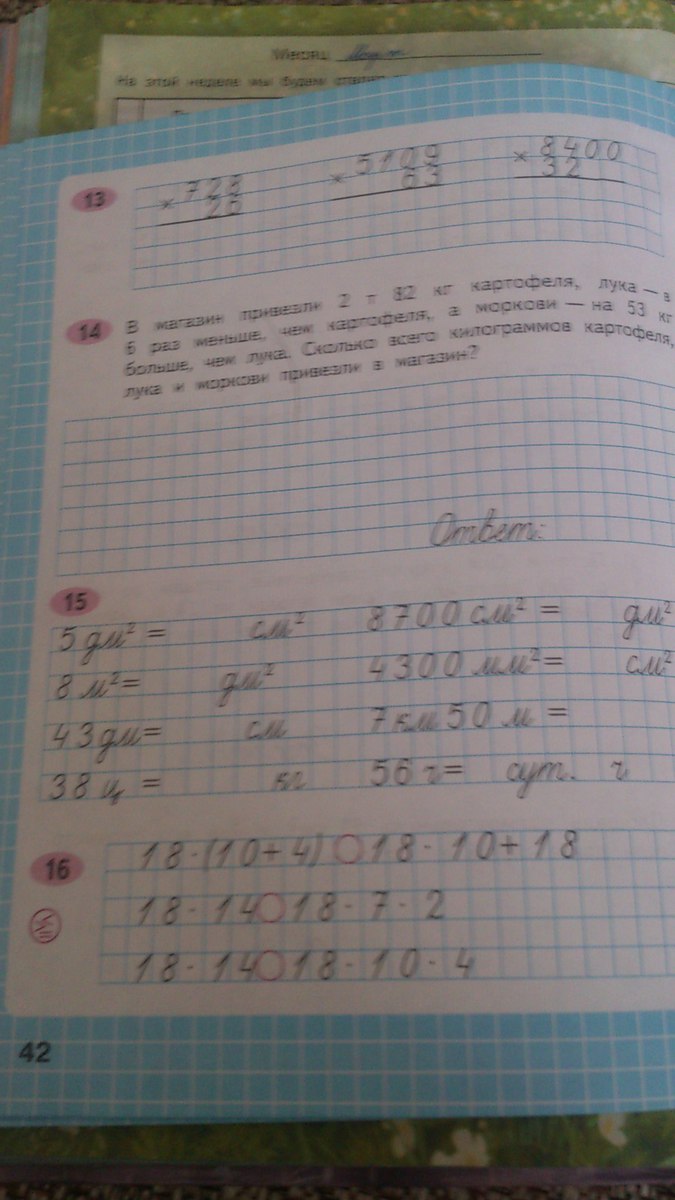 Месяц
На этой неделе мы будем
13
728
× 26
5109
× 63
8400
× 32
14
В магазин привезли 2 т 82 кг картофеля, лука — в
6 раз меньше, чем картофеля, а моркови — на 53 кг
больше, чем лука. Сколько всего килограммов картофеля,
лука и моркови привезли в магазин?
Ответ:
15
5 дм² = см² 8700 см² = дм²
8 м² = дм² 4300 мм² = см²
43 дм = см 7 км 50 м =
38 ц = кг 56 ч = сут. ч
16
18 · (10 + 4) ○ 18 · 10 + 18
18 · 14 ○ 18 · 7 · 2
18 · 14 ○ 18 · 10 · 4
42